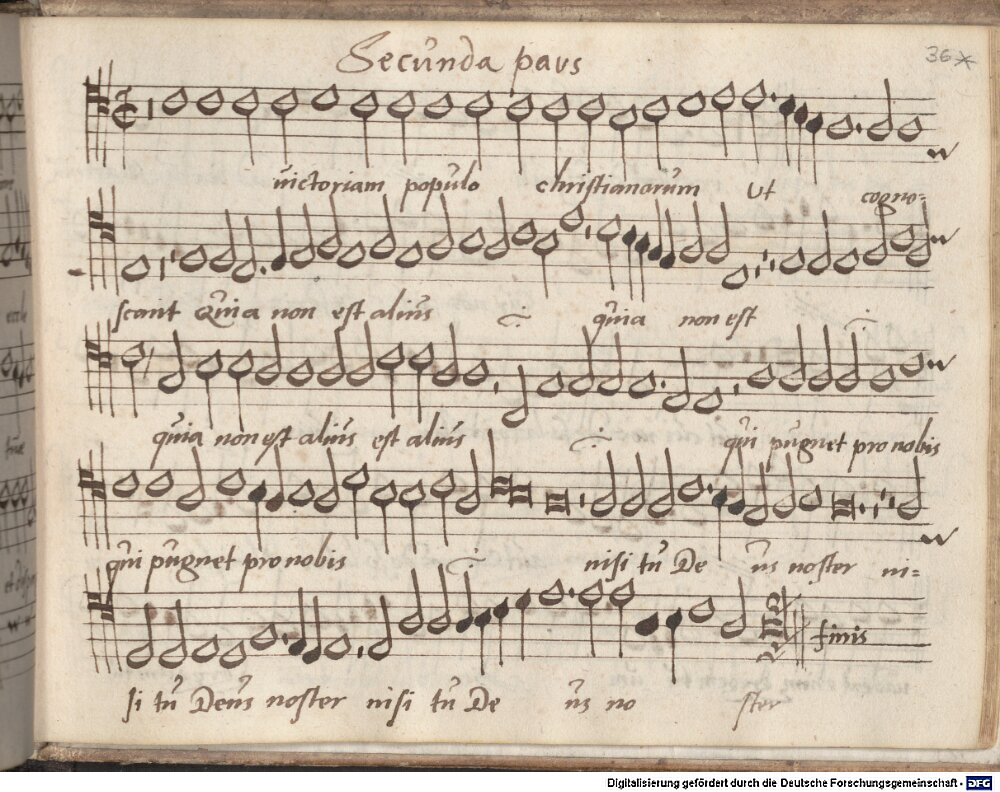 Secunda pars
36
victoriam populo christianorum Ut cogno-
scant Quia non est alius quia non est
quia non est alius est alius qui pugnet pro nobis
qui pugnet pro nobis nisi tu De us noster ni-
finis
si tu Deus noster nisi tu De us no ster
Digitalisierung gefördert durch die Deutsche Forschungsgemeinschaft - DFG